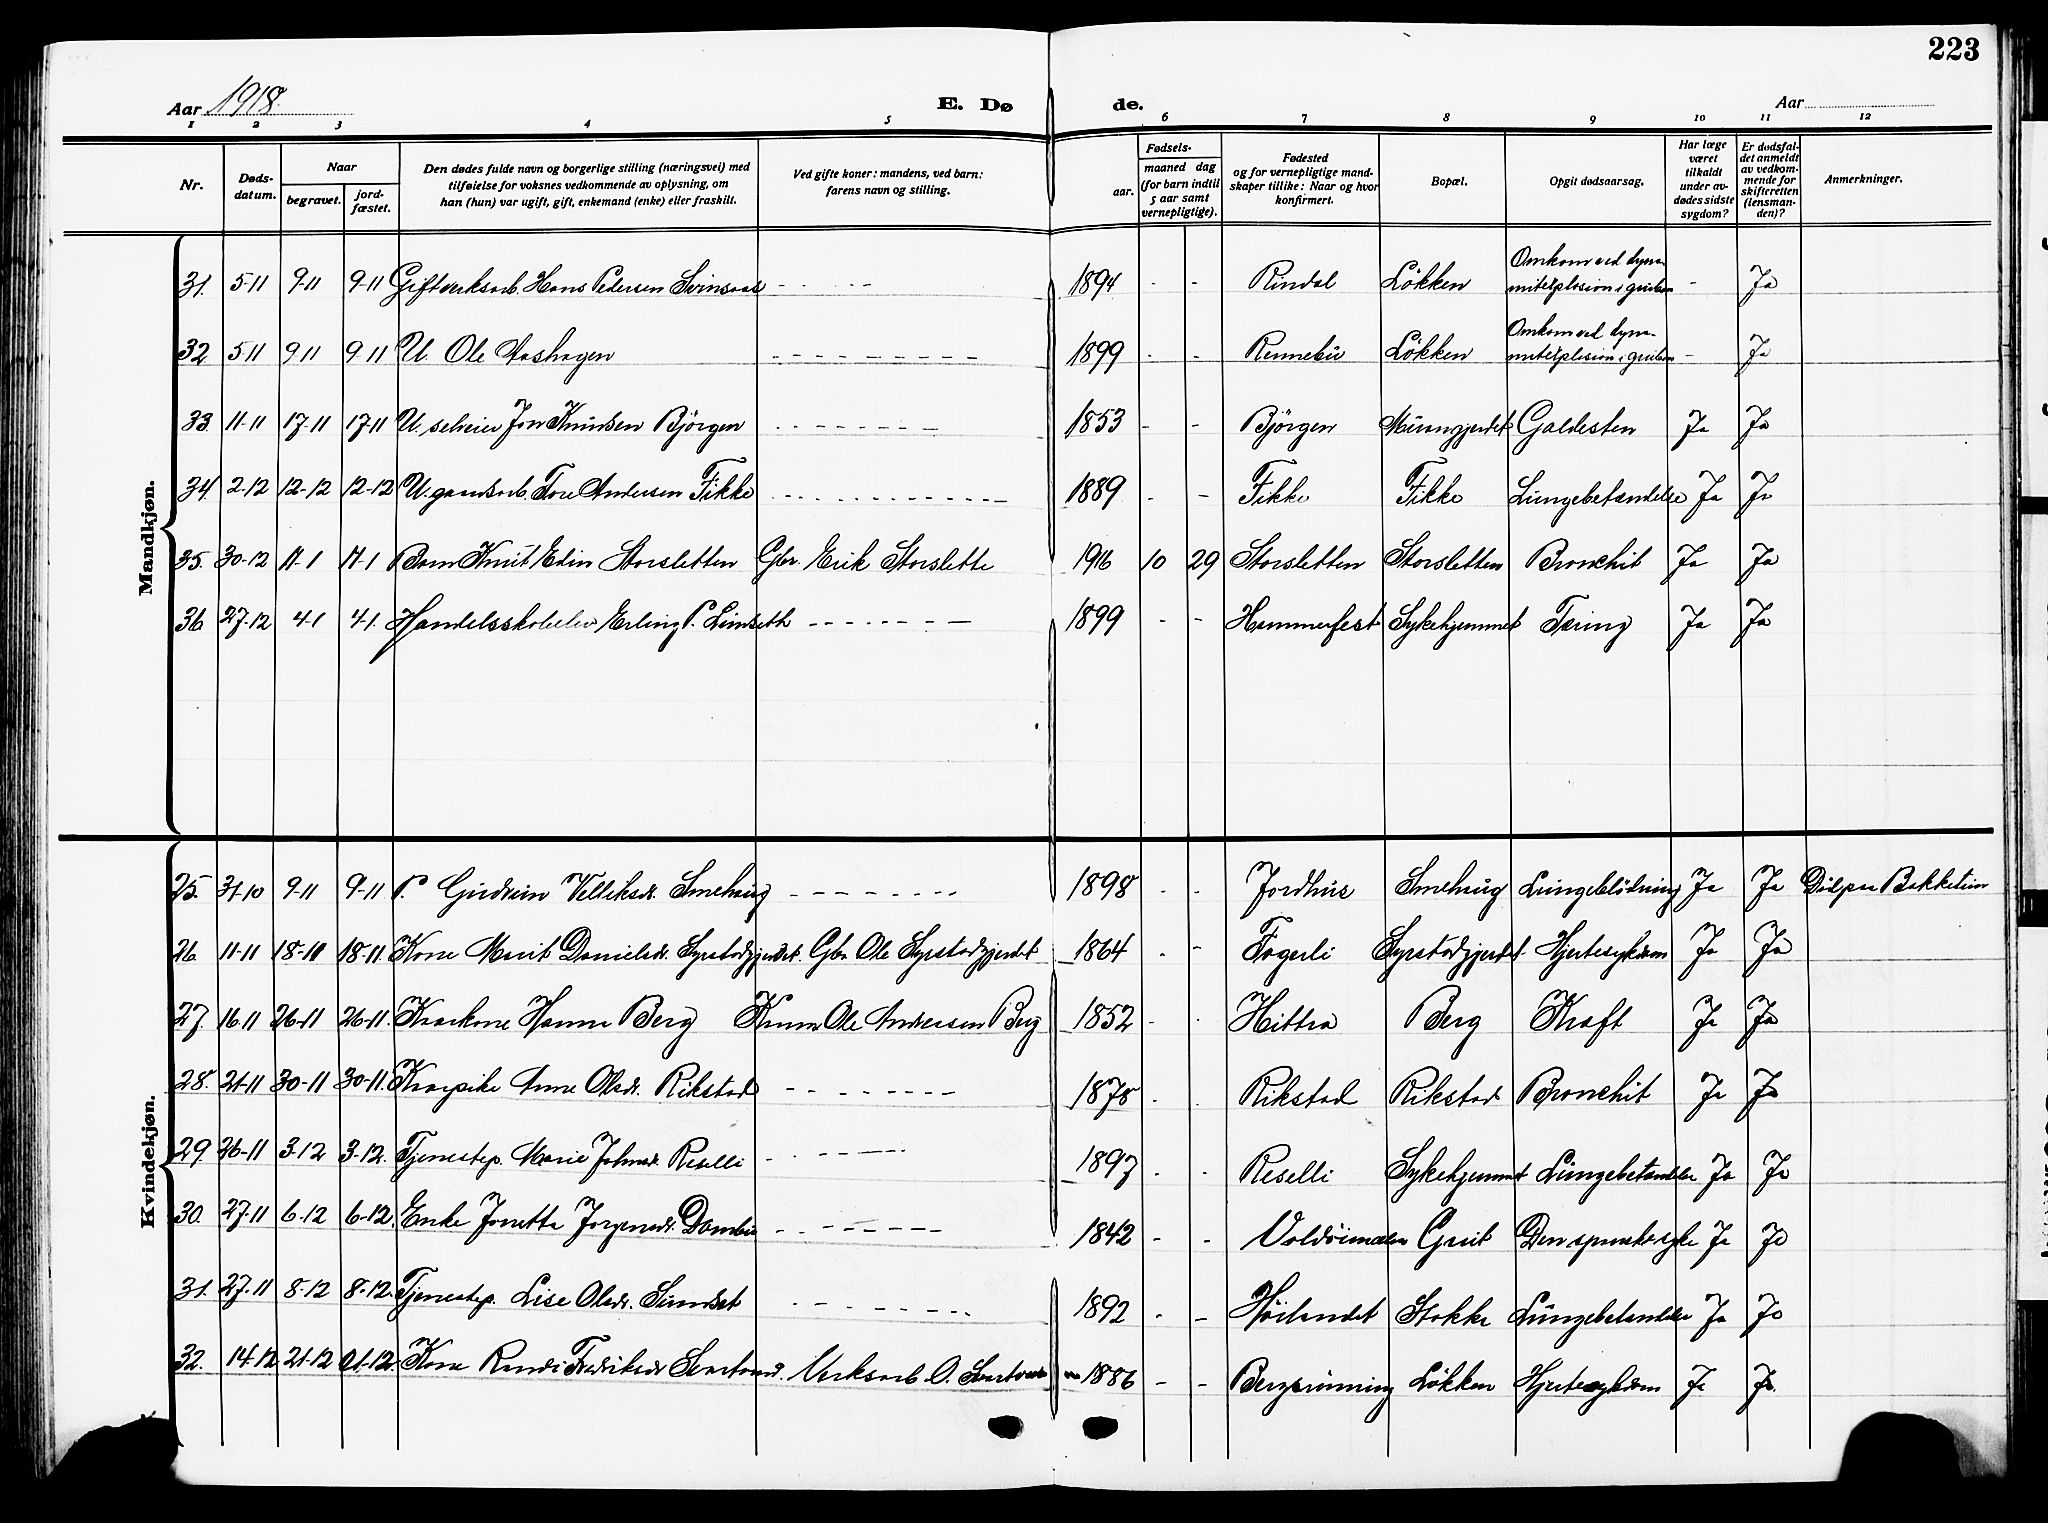 223
Aar 1918. E. Dø de. Aar
1 2 3 4 5 6 7 8 9 10 11 12
Nr.
Døds-
datum.
Naar
begravet.
jord-
fæstet.
Den dødes fulde navn og borgerlige stilling (næringsvei) med
tilføielse for voksnes vedkommende av oplysning, om
han (hun) var ugift, gift, enkemand (enke) eller fraskilt.
Ved gifte koner: mandens, ved barn:
farens navn og stilling.
Fødsels-
aar.
maaned dag
(for barn indtil
5 aar samt
vernepligtige).
Fødested
og for vernepligtige mand-
skaper tillike: Naar og hvor
konfirmert.
Bopæl.
Opgit dødsaarsag.
Har læge
været
tilkaldt
under av-
dødes sidste
sygdom?
Er dødsfal-
det anmeldt
av vedkom-
mende for
skifteretten
(lensman-
den)?
Anmerkninger.
Mandkjøn.
31. 5-11 9-11 9-11 Gift verksarb. Hans Pedersen Svinsaas - - - - - 1894 - - Rindal Løkken Omkom ved dyna-
mitexplosion i gruben - Ja
32 5-11 9-11 9-11 U. Ole Aashagen - - - - - 1899 - - Rennebu Løkken Omkom ved dyna-
mitexplosion i gruben - Ja
33. 11-11 17-11 17-11 U. selveier Jon Knudsen Bjørgen - - - - - 1853 - - Bjørgen Muranggjerdet Galdesten Ja Ja
34 2-12 12-12 12-12 U. gaardsarb. Tore Andersen Fikke - - - - - 1889 - - Fikke Fikke Lungebetændelse Ja Ja
35. 30-12 11-1 11-1 Barn Knut Edin Storsletten Gbr. Erik Storslette 1916 10 29 Storsletten Storsletten Bronchit Ja Ja
36 27-12 4-1 4-1. Handelsskoleelev Erling P. Lindseth - - - - - 1899 - - Hammerfest Sykehjemmet Tæring Ja Ja
Kvindekjøn.
25. 31-10 9-11 9-11 P. Gudrun Velliksdr. Smehaug - - - - - 1898 - - Jordhus Smehaug Lungeblødning Ja Ja Død paa Bakketun
26. 11-11 18-11 18-11. Kone Marit Danielsdr. Syrstadgjerdet. Gbr. Ole Syrstadgjerdet 1864 - - Fagerli Syrstadgjerdet. Hjertesykdom Ja Ja
27. 16-11 26-11 26-11. Kaarkone Hanna Berg Kaarm. Ole Andersen Berg 1852 - - Hittra Berg Kræft Ja Ja
28. 21-11 30-11 30-11. Anne Olsdr. Rikstad - - - - - 1878 - - Rikstad Rikstad Bronchit Ja Ja
29. 26-11 3-12 3-12. Tjenestep. Marie Johnsdr. Reselli - - - - - 1897 - - Reselli Sykehjemmet Lungebetændelse Ja Ja
30. 27-11 6-12 6-12. Enke Jonetta Jørgensdr. Dombu - - - - - 1842 - - Grut Den spanske syke Ja Ja
31. 27-11 8-12 8-12. Tjenestep. Lise Olsdr. Sundset - - - - - 1892 - - Høilandet Stokke Lungebetændelse Ja Ja
32. 14-12 21-12 21-12 Kone Randi Fredriksdr. Svartvand. Verksarb O. Svartvand 1886 - - Løkken Hjertesykdom Ja Ja.